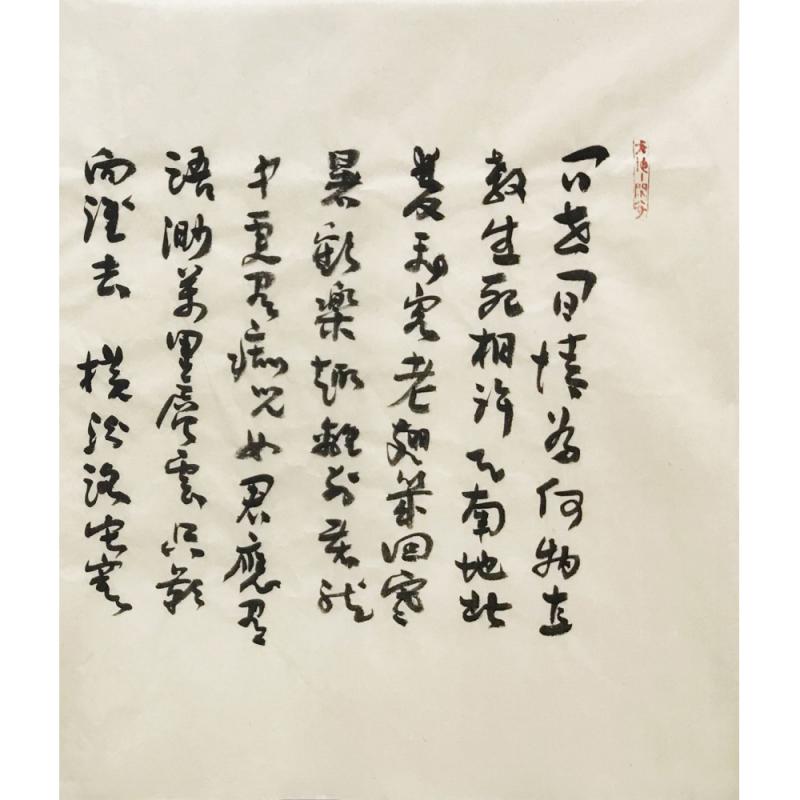 問世間情為何物直
教生死相許天南地北
雙飛客老翅幾回寒
暑歡樂趣離別苦就
中更有痴兒女君應有
語渺萬里層雲只影
向誰去 橫汾路寂寞